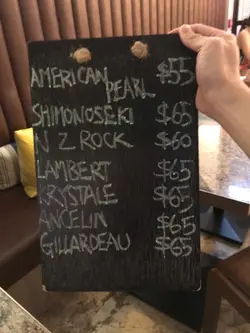 AMERICAN PEARL $55
SHIMONOSEKI $65
N Z ROCK $60
LAMBERT $65
KRYSTALE $65
ANCELIN $65
GILLARDEAU $65